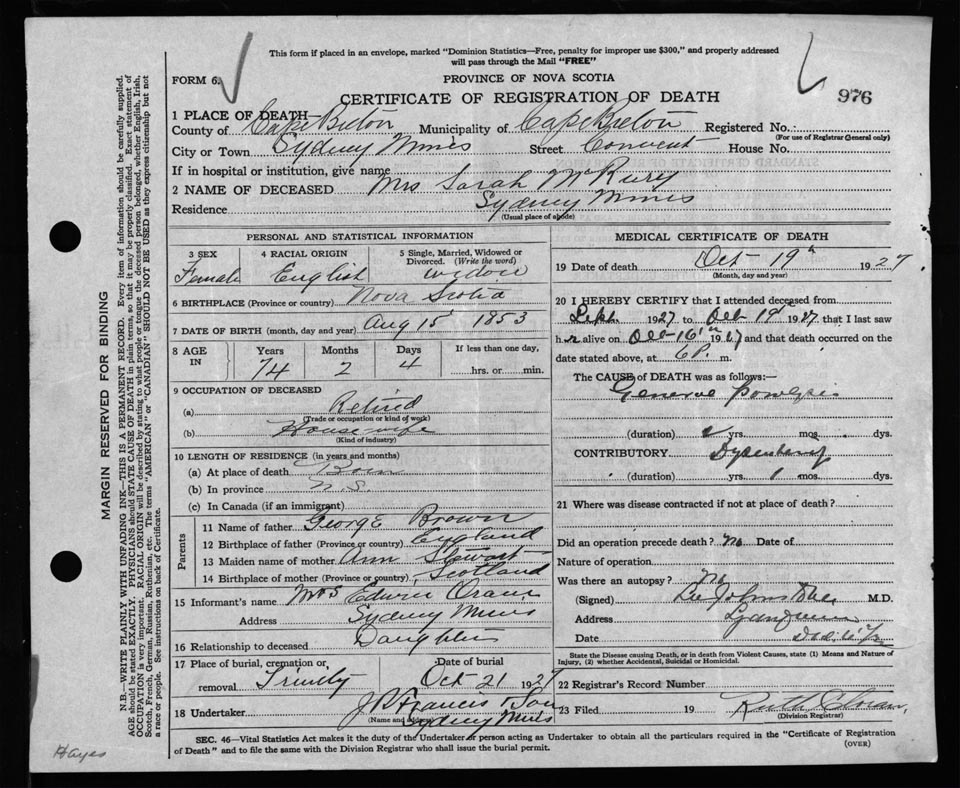 This form if placed in an envelope, marked "Dominion Statistics—Free, penalty for improper use $300," and properly addressed
will pass through the Mail "FREE"
FORM 6.
PROVINCE OF NOVA SCOTIA
976
CERTIFICATE OF REGISTRATION OF DEATH
1 PLACE OF DEATH
County of Cape Breton Municipality of Cape Breton Registered No.
(For use of Registrar General only)
City or Town Sydney Mines Street Convent House No.
If in hospital or institution, give name
2 NAME OF DECEASED Mrs Sarah
Residence Sydney Mines
(Usual place of abode)
PERSONAL AND STATISTICAL INFORMATION
3 SEX Female
4 RACIAL ORIGIN English
5 Single, Married, Widowed or Divorced. (Write the word) widow
6 BIRTHPLACE (Province or country) Nova Scotia
7 DATE OF BIRTH (month, day and year) Aug 15 1853
8 AGE IN Years 74 Months 2 Days 4 If less than one day, hrs. or min.
9 OCCUPATION OF DECEASED
(a) Retired
(Trade or occupation or kind of work)
(b) House wife
(Kind of industry)
10 LENGTH OF RESIDENCE (in years and months)
(a) At place of death Born
(b) In province N.S.
(c) In Canada (if an immigrant)
Parents
11 Name of father George Brown
12 Birthplace of father (Province or country) England
13 Maiden name of mother Ann Stewart
14 Birthplace of mother (Province or country) Scotland
15 Informant's name Mrs Edwin Oram
Address Sydney Mines
16 Relationship to deceased Daughter
17 Place of burial, cremation or removal Trinity
Date of burial Oct 21 1927
18 Undertaker J. Francis & Son
(Name and Address) Sydney Mines
MEDICAL CERTIFICATE OF DEATH
19 Date of death Oct 19 1927
(Month, day and year)
20 I HEREBY CERTIFY that I attended deceased from
Sept. 1927 to Oct 19 1927, that I last saw
h er alive on Oct 16 1927 and that death occurred on the
date stated above, at 6 P. m.
The CAUSE of DEATH was as follows:—
(duration) 2 yrs. mos. dys.
CONTRIBUTORY Dysentery
(duration) yrs. 1 mos. dys.
21 Where was disease contracted if not at place of death?
Did an operation precede death? No Date of
Nature of operation
Was there an autopsy? No
(Signed) Johnstone M.D.
Address
Date
State the Disease causing Death, or in death from Violent Causes, state (1) Means and Nature of
Injury, (2) whether Accidental, Suicidal or Homicidal.
22 Registrar's Record Number
23 Filed 19
(Division Registrar)
SEC. 46—Vital Statistics Act makes it the duty of the Undertaker or person acting as Undertaker to obtain all the particulars required in the "Certificate of Registration
of Death" and to file the same with the Division Registrar who shall issue the burial permit.
(OVER)
MARGIN RESERVED FOR BINDING
N.B.—WRITE PLAINLY WITH UNFADING INK—THIS IS A PERMANENT RECORD. Every item of information should be carefully supplied.
AGE should be stated EXACTLY. PHYSICIANS should STATE CAUSE OF DEATH in plain terms, so that it may be properly classified. Exact statement of
OCCUPATION is very important. RACIAL ORIGIN will be described by stating to what people or tongue the deceased person belonged, whether English, Irish,
Scotch, French, German, Russian, Ruthenian, etc. The terms "AMERICAN" or "CANADIAN" SHOULD NOT BE USED as they express citizenship but not
a race or people. See instructions on back of Certificate.
Hayes